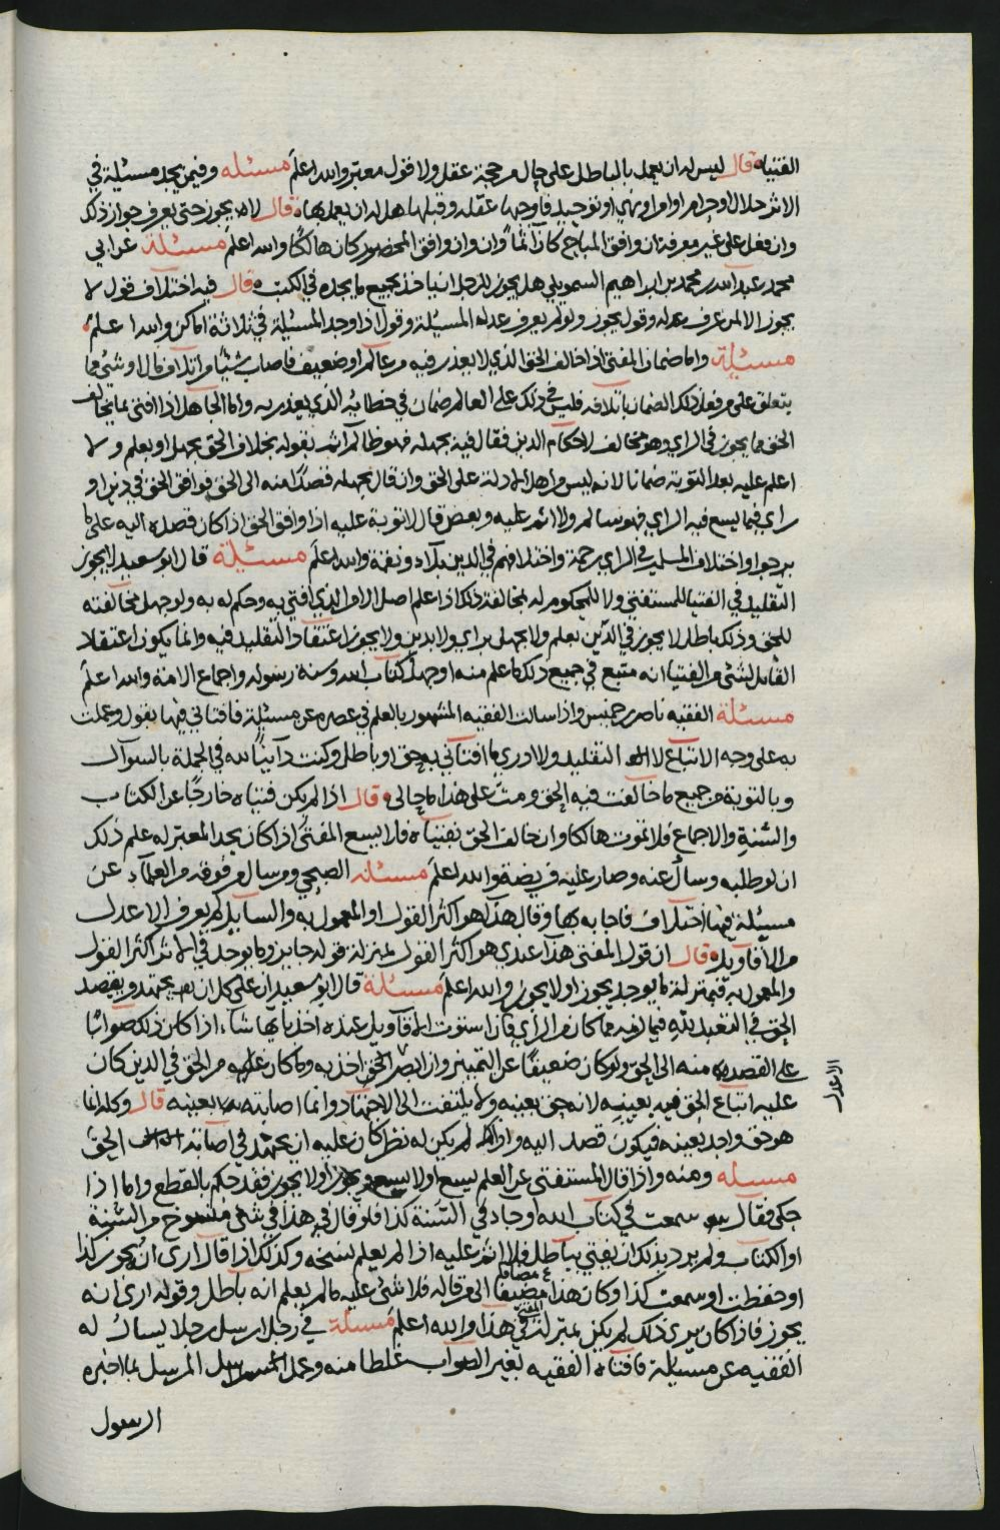 الفتيا قال ليس له ان يعمل بالباطل على حال من حجة عقل ولا قول معتبر والله اعلم مسئلة وفيمن يجد مسئلة في
الاثر حلال او حرام او امر او نهي او توحيد فاوجبها عقله وقبلها هل له ان يعمل بها قال لا يجوز حتى يعرف جواز ذلك
وان فعل على غير معرفة فان وافق المباح كان آثما وان وافق المحضور كان هالكا والله اعلم مسئلة عن ابي
محمد عبدالله بن محمد بن ابراهيم السمويلي هل يجوز للرجل ان ياخذ بجميع ما يجده في الكتب قال فيه اختلاف قول لا
يجوز الا لمن عرف عدله وقول يجوز ولو لم يعرف عدله المسئلة وقول اذا وجد المسئلة في ثلاثة اماكن والله اعلم
مسئلة واما ضمان المفتي اذا خالف الحق الذي لا يعذر فيه من عالم او ضعيف فاصاب شيئا من اتلاف مال او شيء مما
يتعلق على من فعل ذلك الضمان باتلافه فليس في ذلك على العالم ضمان في خطائه الذي يعذر به واما الجاهل اذا افتى بما يخالف
الحق مما يجوز في الراي وهو مخالف لاحكام الدين فقال فيه بجهله فهو ظالم آثم بقوله بخلاف الحق بجهل او بعلم ولا
اعلم عليه بعد التوبة ضمانا لانه ليس من اهل الادلة على الحق وان قال بجهله قصدا منه الى الحق فوافق الحق في دين او
راي فيما يسع فيه الراي فهو سالم ولا اثم عليه وبعض قال لا توبة عليه اذا وافق الحق اذا كان قصده اليه على ما
يرجوا واختلاف المسلمين في الراي رحمة واختلافهم في الدين بلاء ونقمة والله اعلم مسئلة قال ابو سعيد لا يجوز
التقليد في الفتيا للمستفتي ولا للمحكوم له بمخالفة ذلك اذا علم اصل الاول الذي افتي به وحكم له به ولو جهل مخالفته
للحق وذلك باطل لا يجوز في الدين بعلم ولا بجهل براي ولا بدين ولا يجوز اعتقاد التقليد فيه وانما يكون اعتقاد
القابل لشيء من الفتيا انه متبع في جميع ذلك ما علم منه او جهل كتاب الله وسنة رسوله واجماع الامة والله اعلم
مسئلة الفقيه ناصر بن خميس واذا سالت الفقيه المشهور بالعلم في عصره عن مسئلة فافتاني فيها بقول وعملت
به على وجه الاتباع لا التقليد ولا ادري ما افتاني به حق او باطل وكنت دآينا لله في الجملة بالسوآل
وبالتوبة من جميع ما خالفت فيه الحق ومت على هذا ما حالي قال اذا لم يكن فتياه خارجا عن الكتاب
والسنة والاجماع فلا تموت هالكا وان خالف الحق بفتياه فلا يسع المفتى اذا كان يجد المعبر له علم ذلك
ان لو طلبه وسأل عنه وصار عليه فريضة والله اعلم مسئله الصبحي ومن سال من فوقه من العلماء عن
مسئلة فيها اختلاف فاجابه بها وقال هذا هو اكثر القول او المعمول به والسايل لم يعرف الاعدل
من الأقاويل قال ان قول المفتي هذا عندي هو اكثر القول بمنزلة قوله جايز وما يوجد في الاثر اكثر القول
والمعمول به فبمنزلة ما يوجد يجوز او لا يجوز والله اعلم مسئلة قال ابو سعيد ان على كل ان يجتهد ويقصد
الحق في التعبد لله فيما لزمه مما كان من الراي فان استوت الاقاويل عنده اخذ بايها شاء اذا كان ذلك صوابا
على القصد منه الى الحق ولو كان ضعيفا عن التمييز وان ابصر الحق اخذ به وما كان عليه من الحق في الدين كان
عليه اتباع الحق فيه بعينه لانه حق بعينه ولا يلتفت الى الاجتهاد وانما اصابته بعينه قال وكله انما
الاعدل
هو حق واحد بعينه فيكون قصد اليه ولو لم يكن له نظر كان عليه ان يجتهد في اصابة الحق
مسئله ومنه واذا قال المستفتى عن العلم يسع او لا يسع ويجوز او لا يجوز فقد حكم بالقطع واما اذا
حكى فقال سمعت في كتاب الله او جاء في السنة كذا فلو قال في هذا في شيء منسوخ من السنة
او الكتاب ولم يرد بذلك ان يفتي بباطل فلا اثم عليه اذا لم يعلم نسخه وكذلك اذا قال ارى ان يجوز كذا
او حفظت او سمعت كذا وكان هذا مضيفا الى من قاله فلا شيء عليه ما لم يعلم انه باطل وقوله ارى انه
يجوز فاذا كان يرى ذلك لم يكن بمنزلة المفتي في هذا والله اعلم مسئلة في رجل ارسل رجلا يسال له
الفقيه عن مسئلة فافتاه الفقيه بغير الصواب غلطا منه وعمل المرسل بما اخبره
الرسول